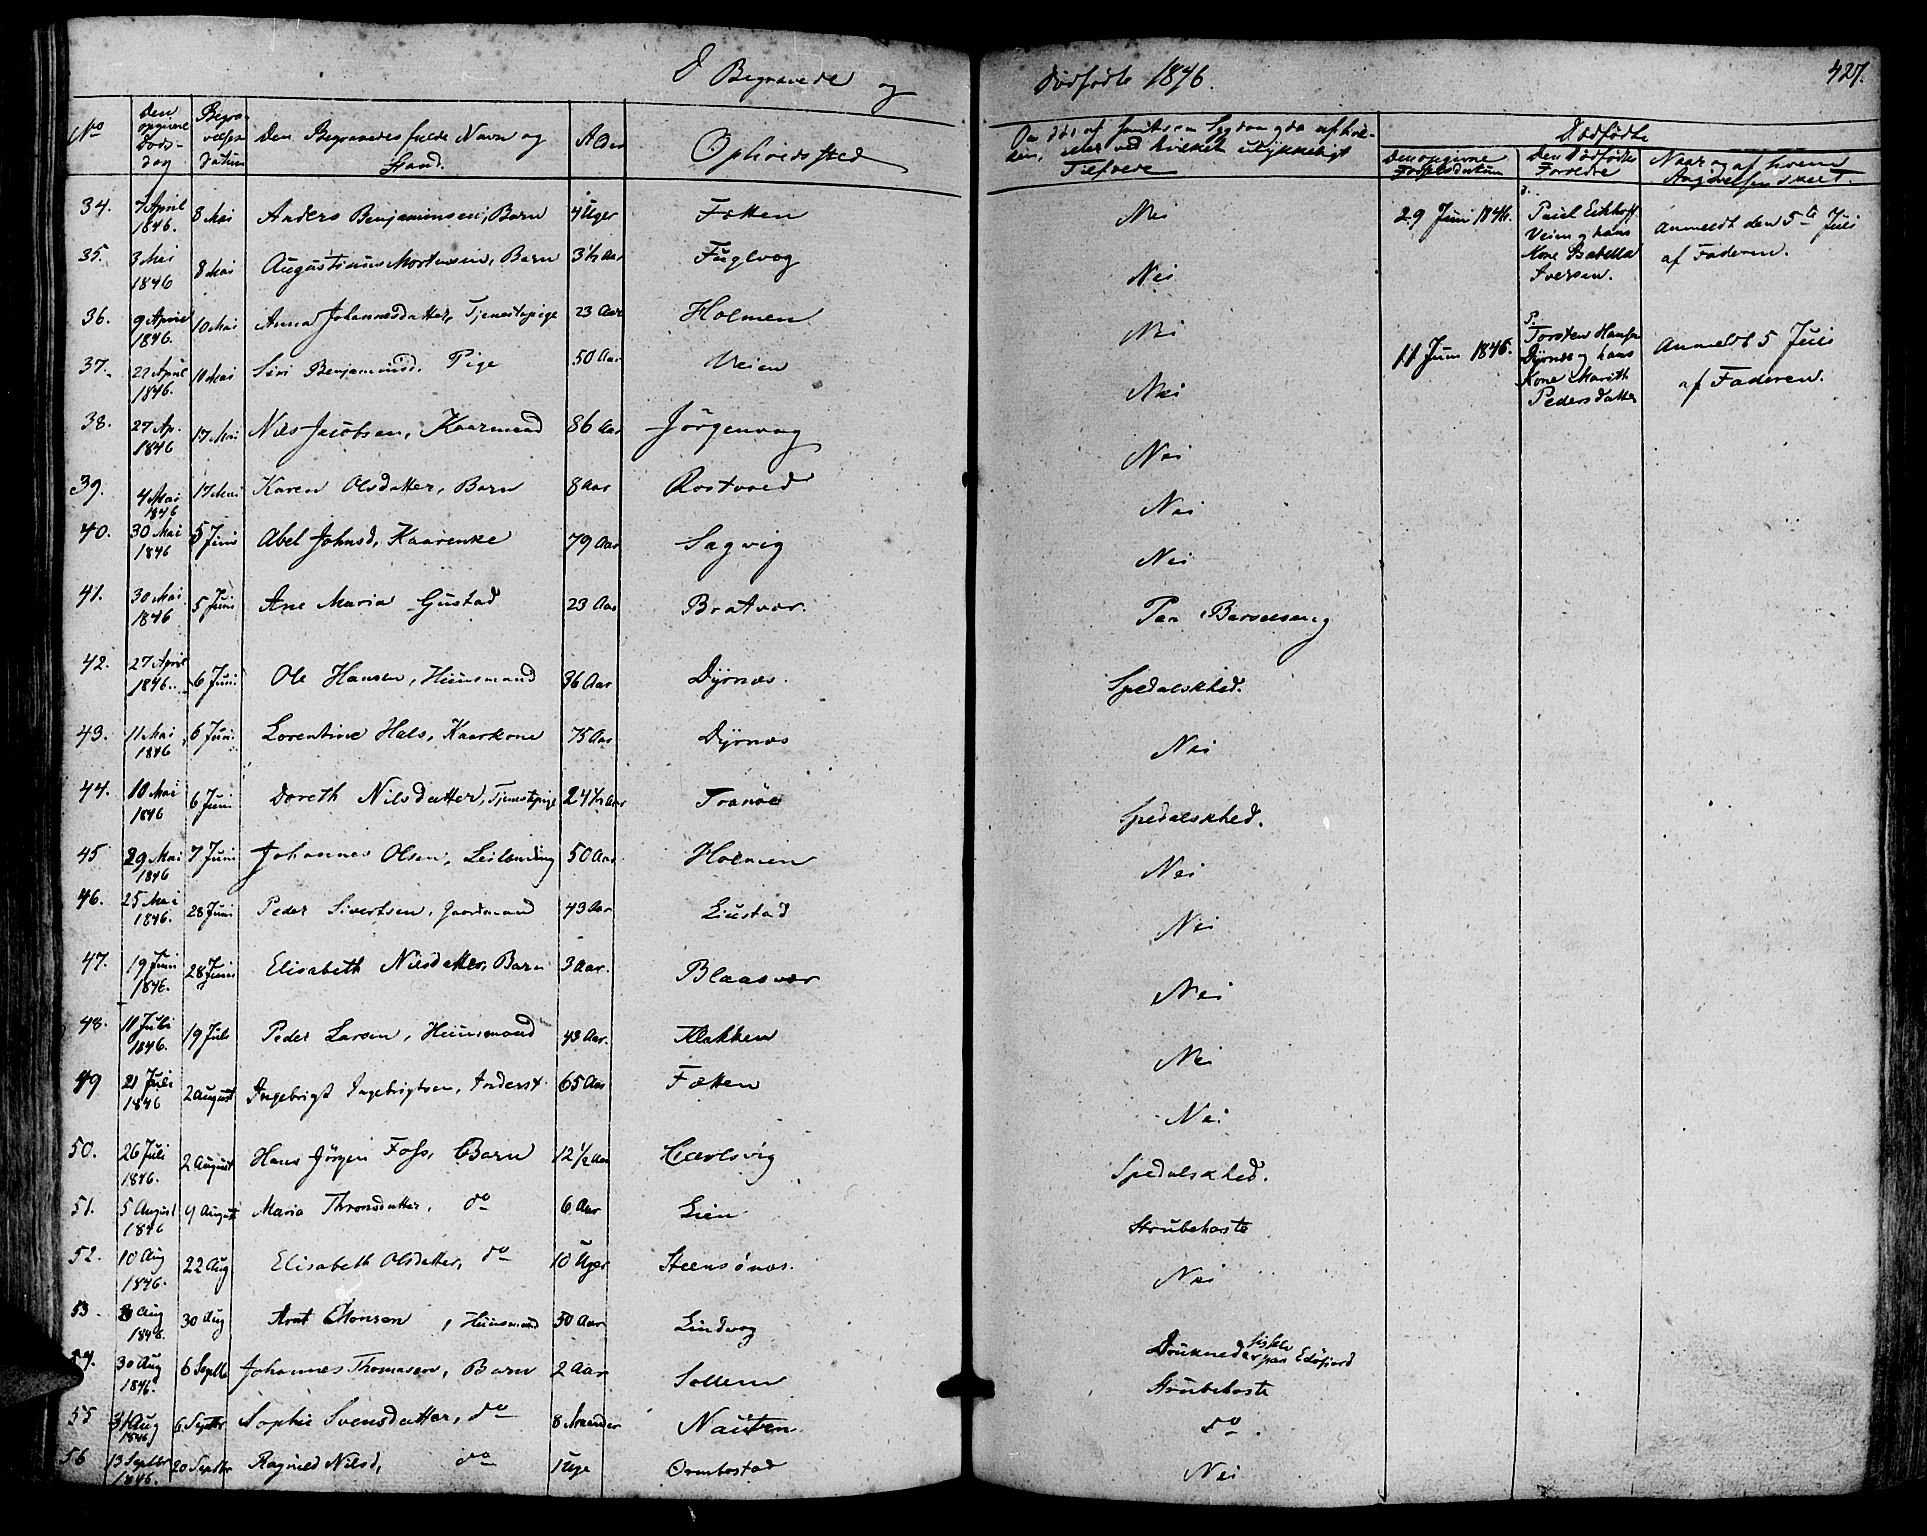 Begravede og Dødfødte 1846. 427.
No
Den opgivne Døds-dag
Begra-velses Datum
Den Begravedes fulde Navn og Stand.
Alder
Opholdssted
Tilfælde
Dødfødte
Den opgivne Fødselsdatum
Den Dødfødtes Forældre
Naar og af hvem Angivelsen skeet.
34. 7 April 1846. 8 Mai Anders Benjaminsen, Barn 4 Uger Fætten Nei
35. 3 Mai 1846 8 Mai Augustinus Mortensen, Barn 3½ Aar Fuglvog Nei
36. 9 April 1846. 10 Mai Anna Johannesdatter, Tjenestepige 23 Aar Holmen Nei
37. 22 April 1846. 10 Mai Siri Benjaminsd, Pige 50 Aar Veien Nei
38. 27 Ap. 1846 17 Mai Nils Jacobsen, Kaarmand 86 Aar Jörgenvag Nei
39. 4 Mai 1846 17 Mai Karen Olsdatter, Barn 8 Aar Rostvold Nei
40. 30 Mai 1846 5 Juni Abel Johnsd, Kaarenke 79 Aar Sagvig Nei
41. 30 Mai 1846 5 Juni Ane Maria Gustad 23 Aar Bratvær. Paa Barselseng
42. 27 April 1846. 6 Juni Ole Hansen, Huusmand 36 Aar Dyrnæs. Spedalskhed.
43. 11 Mai 1846 6 Juni Lorentine Hals, Kaarkone 75 Aar Dyrnæs Nei
44. 10 Mai 1846 6 Juni Doreth Nilsdatter, Tjenestpige 24½ Aar Tranöe Spedalskhed.
45 29 Mai 1846 7 Juni Johannes Olsen, Leilænding 50 Aar Holmen Nei
46. 25 Mai 1846. 28 Juni Peder Sivertsen, Gaardmand 43 Aar Liustad Nei
47. 19 Juni 1846. 28 Juni Elisabeth Nilsdatter, Barn 3 Aar. Blaasvær Nei
48. 11 Juli 1846. 19 Juli Peder Larsen, Huusmand 43 Aar. Flakken Nei
49 21 Juli 1846 2 August Ingebrigt Ingebrigtsen, Inderst. 65 Aar Fætten Nei
50. 26 Juli 1846. 2 August Hans Jörgen Foss, Barn 12½ Aar Carlsvig Spedalskhed.
51. 5 August 1846 9 August Maria Thronsdatter, do 6 Aar Lien Strubehoste
52. 10 Aug 1846. 22 Aug Elisabeth Olsdatter, do 10 Uger Steensönæs. Nei
53 Aug 1846. 30 Aug Arnt Monsen, Huusmand 50 Aar Lindvog Druknede paa Edöfjord
54. 30 Aug 1846. 6 Septb Johannes Thomasen, Barn 2 Aar Sollem Strubehoste
55 31 Aug 1846 6 Septbr Sophie Svensdatter, do 8 Maaneder Nausten do.
56 13 Septbr 1846. 20 Septbr Ragnild Nilsd, do 1 Uge Ormbostad Nei
29 Juni 1846.
Paul Eckhoff
Veien og hans
Kone Isabella
Iversen.
Anmeldt den 5te Juli
af Faderen.
11 Juni 1846.
P.
Torsten Hansen
Dyrnæs og hans
Kone Marith
Pedersdatter
Anmeldt 5 Juli
af Faderen.